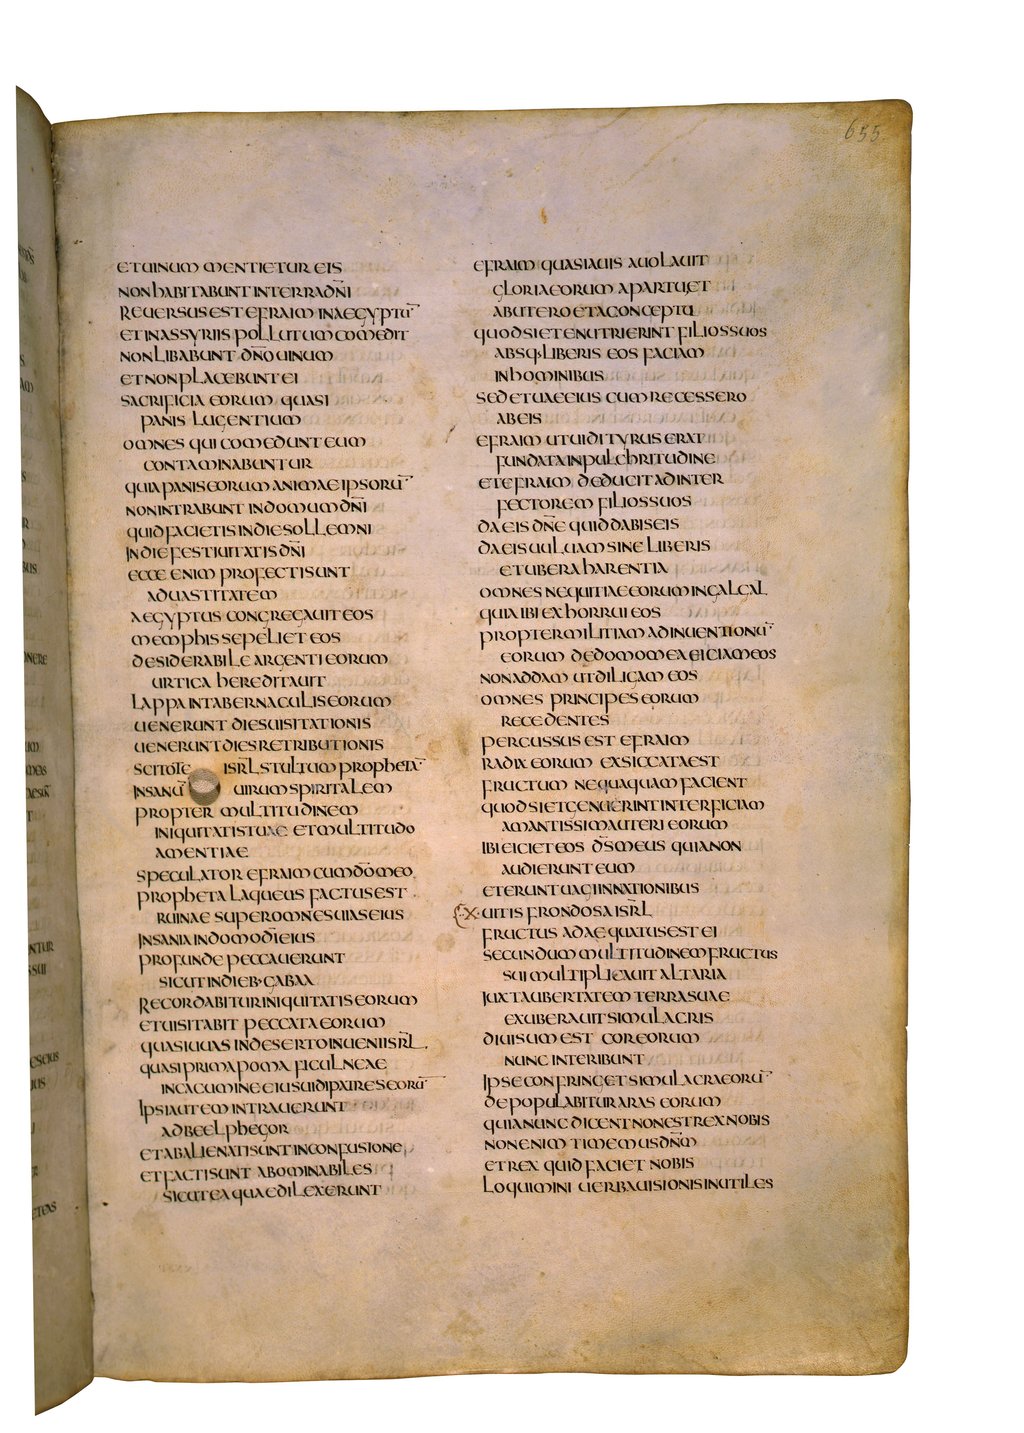 655
ET UINUM MENTIETUR EIS
NON HABITABUNT IN TERRA DN̄I
REUERSUS EST EFRAIM IN AEGYPTŪ
ET IN ASSYRIIS POLLUTUM COMEDIT
NON LIBABUNT DN̄O UINUM
ET NON PLACEBUNT EI
SACRIFICIA EORUM QUASI
PANIS LUGENTIUM
OMNES QUI COMEDUNT EUM
CONTAMINABUNTUR
QUIA PANIS EORUM ANIMAE IPSORŪ
NON INTRABUNT IN DOMUM DN̄I
QUID FACIETIS IN DIE SOLLEMNI
IN DIE FESTIUITATIS DN̄I
ECCE ENIM PROFECTI SUNT
A UASTITATEM
AEGYPTUS CONGREGAUIT EOS
MEMPHIS SEPELIET EOS
DESIDERABILE ARGENTI EORUM
URTICA HEREDITAUIT
LAPPA IN TABERNACULIS EORUM
UENERUNT DIES UISITATIONIS
UENERUNT DIES RETRIBUTIONIS
SCITOTE ISRL̄ STULTUM PROPHETĀ
INSANŪ UIRUM SPIRITALEM
PROPTER MULTITUDINEM
INIQUITATIS TUAE ET MULTITUDO
AMENTIAE
SPECULATOR EFRAIM CUM DŌ MEO
PROPHETA LAQUEUS FACTUS EST
RUINAE SUPER OMNES UIAS EIUS
INSANIA IN DOMO DĪ EIUS
PROFUNDE PECCAUERUNT
SICUT IN DIEB· GABAA
RECORDABITUR INIQUITATIS EORUM
ET UISITABIT PECCATA EORUM
QUASI UUAS IN DESERTO INUENI ISRL̄
QUASI PRIMA POMA FICULNEAE
IN CACUMINE EIUS UIDI PATRES EORŪ
IPSI AUTEM INTRAUERUNT
AD BEELPHEGOR
ET ABALIENATI SUNT IN CONFUSIONE
ET FACTI SUNT ABOMINABILES
SICUT EA QUAE DILEXERUNT
EFRAIM QUASI AUIS AUOLAUIT
GLORIA EORUM A PARTU ET
AB UTERO ET A CONCEPTU
QUOD SI ET ENUTRIERINT FILIOS SUOS
ABSQ· LIBERIS EOS FACIAM
IN HOMINIBUS
SED ET UAE EIUS CUM RECESSERO
AB EIS
EFRAIM UT UIDI TYRUS ERAT
FUNDATA IN PULCHRITUDINE
ET EFRAIM DEDUCIT AD INTER
FECTOREM FILIOS SUOS
DA EIS DN̄E QUID DABIS EIS
DA EIS UULUAM SINE LIBERIS
ET UBERA HARENTIA
OMNES NEQUITIAE EORUM IN GALGAL
QUIA IBI EXHORRUI EOS
PROPTER MILITIAM ADINUENTIONŪ
EORUM DE DOMO MEA EICIAM EOS
NON ADDAM UT DILIGAM EOS
OMNES PRINCIPES EORUM
RECEDENTES
PERCUSSUS EST EFRAIM
RADIX EORUM EXSICCATA EST
FRUCTUM NEQUAQUAM FACIENT
QUOD SI ET GENUERINT INTERFICIAM
AMANTISSIMA UTERI EORUM
IBI EICIET EOS D̄S MEUS QUIA NON
AUDIERUNT EUM
ET ERUNT UAGI IN NATIONIBUS
X UITIS FRONDOSA ISRL̄
FRUCTUS ADAEQUATUS EST EI
SECUNDUM MULTITUDINEM FRUCTUS
SUI MULTIPLICAUIT ALTARIA
IUXTA UBERTATEM TERRAE SUAE
EXUBERAUIT SIMULACRIS
DIUISUM EST COR EORUM
NUNC INTERIBUNT
IPSE CONFRINGET SIMULACRA EORŪ
DEPOPULABITUR ARAS EORUM
QUIA NUNC DICENT NON EST REX NOBIS
NON ENIM TIMEMUS DN̄M
ET REX QUID FACIET NOBIS
LOQUIMINI UERBA UISIONIS INUTILES